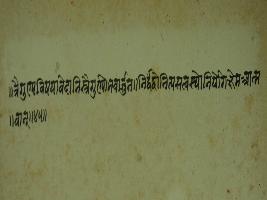 ॥त्रैगुण्यविषयावेदानिस्त्रैगुण्योभवार्जुन॥निर्द्वंद्वोनित्यसत्वस्थोनिर्योगक्षेमआत्म
॥वान्॥४५॥